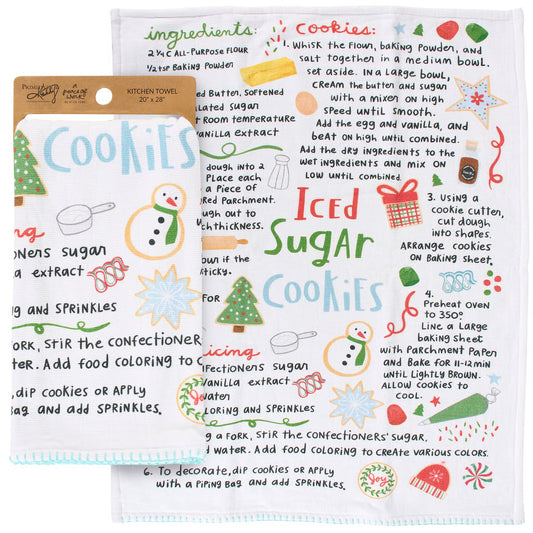 KITCHEN TOWEL
20" x 28"
COOKIES
cing
tioners sugar
a extract
g and Sprinkles
Fork, Stir the confectioner
ter. Add food coloring to c
, dip cookies or apply
Bag and add sprinkles.
ingredients:
2 ¼ c All-Purpose Flour
½ tsp Baking Powder
ed Butter, softened
ulated sugar
t room temperature
anilla extract
dough into 2
Place each
a Piece of
red Parchment.
ugh out to
thickness.
our if the
sticky.
for
icing
nfectioners sugar
Vanilla extract
water
oloring and Sprinkles
cookies:
1. Whisk the flour, baking powder, and
salt together in a medium bowl.
set aside. In a large bowl,
cream the butter and sugar
with a mixer on high
speed until smooth.
Add the egg and vanilla, and
beat on high until combined.
Add the dry ingredients to the
wet ingredients and mix on
low until combined.
Iced
Sugar
Cookies
3. Using a
cookie cutter,
cut dough
into shapes.
Arrange cookies
on Baking sheet.
4.
Preheat oven
to 350°
Line a large
baking sheet
with Parchment Paper
and Bake for 11-12 min
until Lightly Brown.
Allow cookies to
cool.
g a fork, stir the confectioners' sugar.
d water. Add food coloring to create various colors.
6. To decorate, dip cookies or apply
with a piping bag and add sprinkles.
Joy